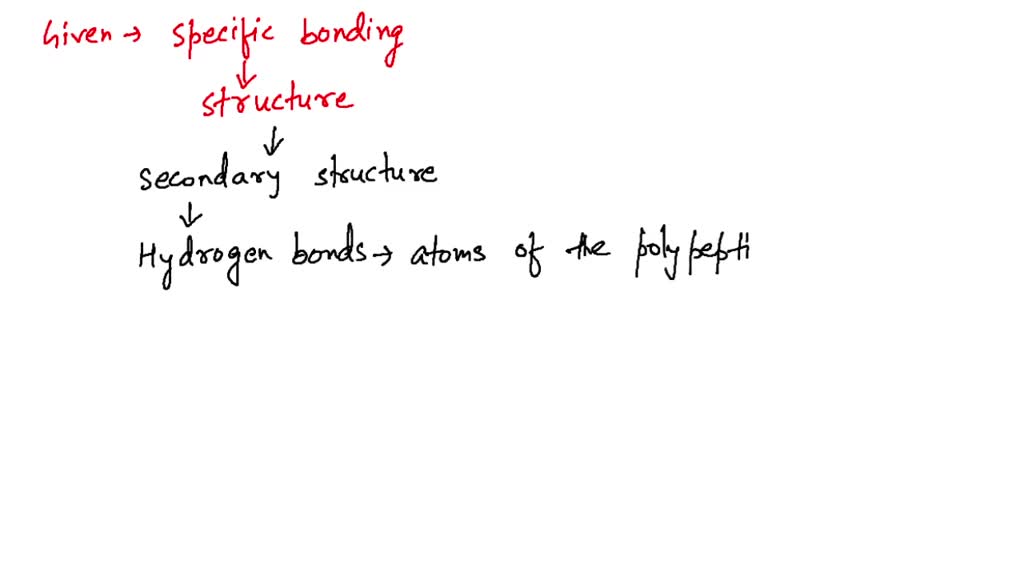 Given → specific bonding
↓
structure
↓
secondary structure
↓
Hydrogen bonds → atoms of the polypepti